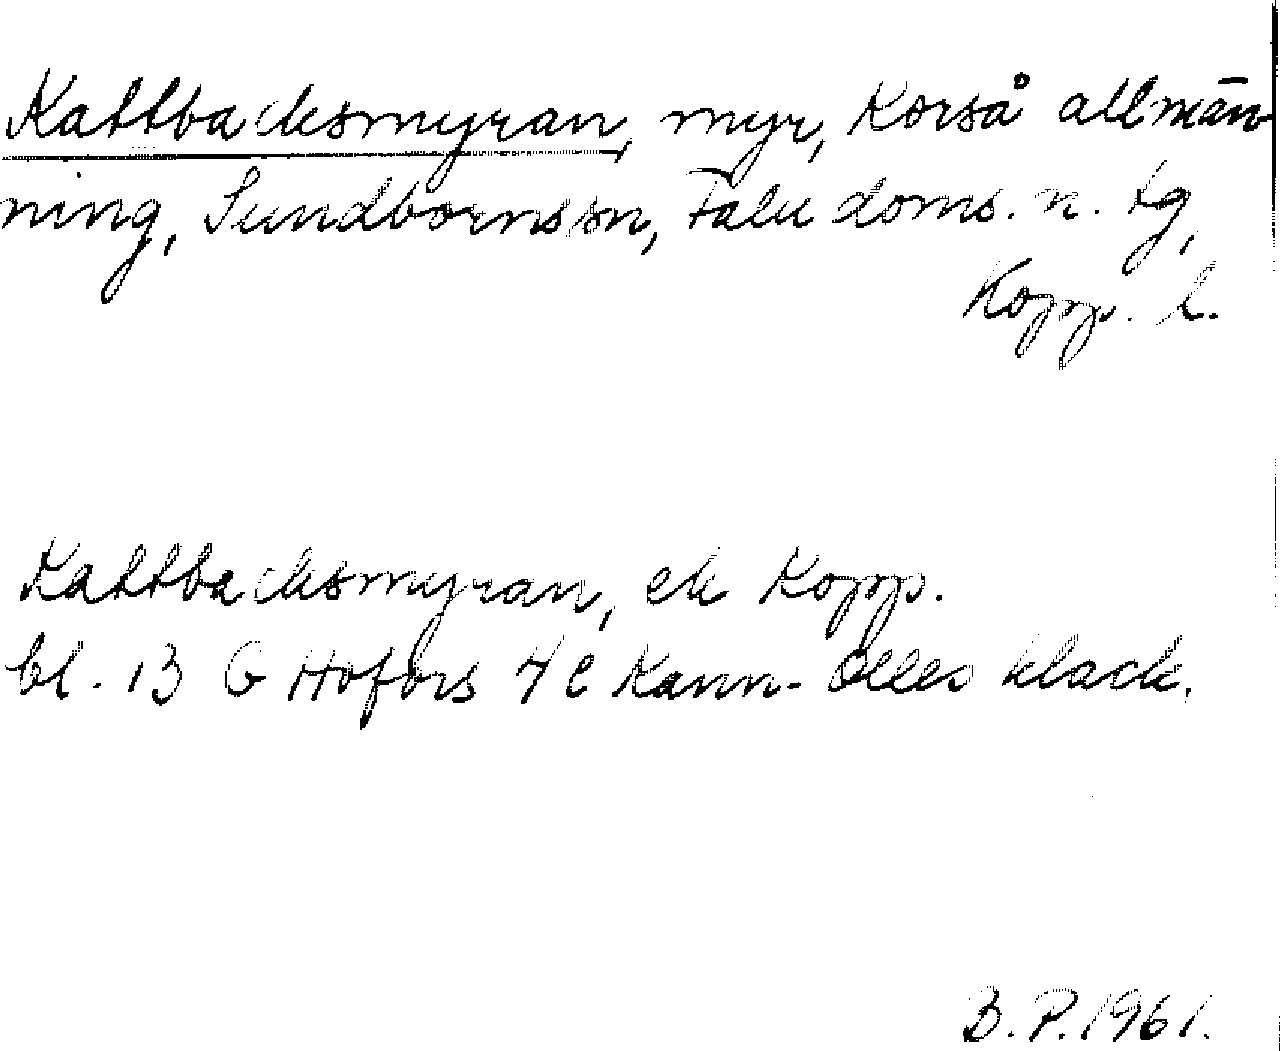 Kattbacksmyran, myr, Korså allmän
ning, Sundbornssn, Falu doms. n. tg,
Kopp. l.
Kattbacksmyran, ek Kopp.
bl. 13 G Hofors 4 e Kann-Olles klack.
B.P. 1961.